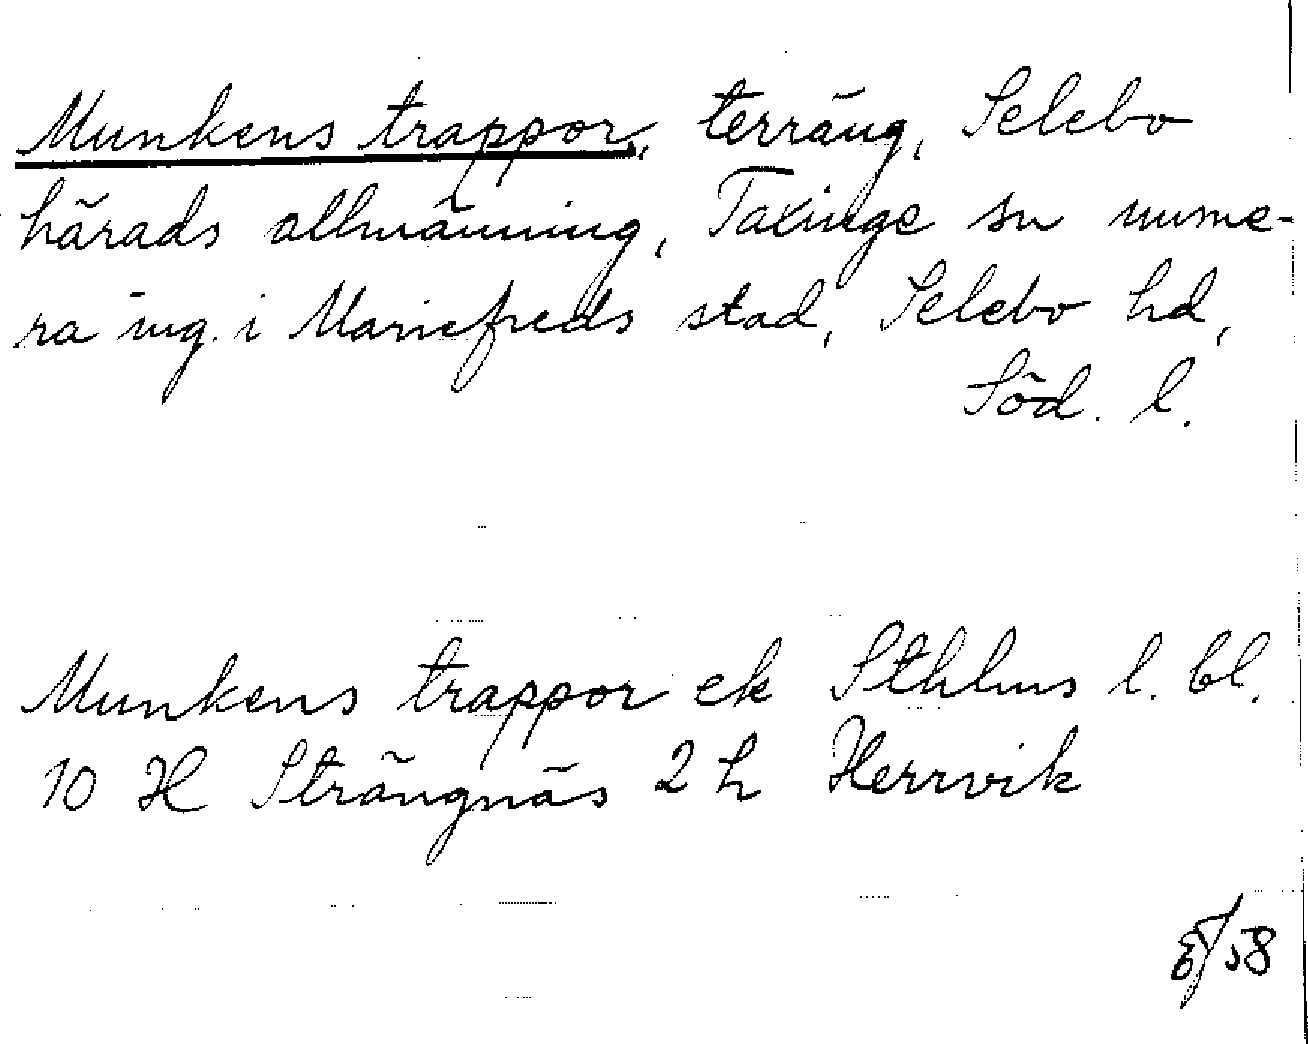 Munkens trappor, terräng, Selebo
härads allmänning, Taxinge sn nume-
ra ing. i Mariefreds stad, Selebo hd,
Söd. l.
Munkens trappor ek Sthlms l. bl.
10 H Strängnäs 2 h Herrvik